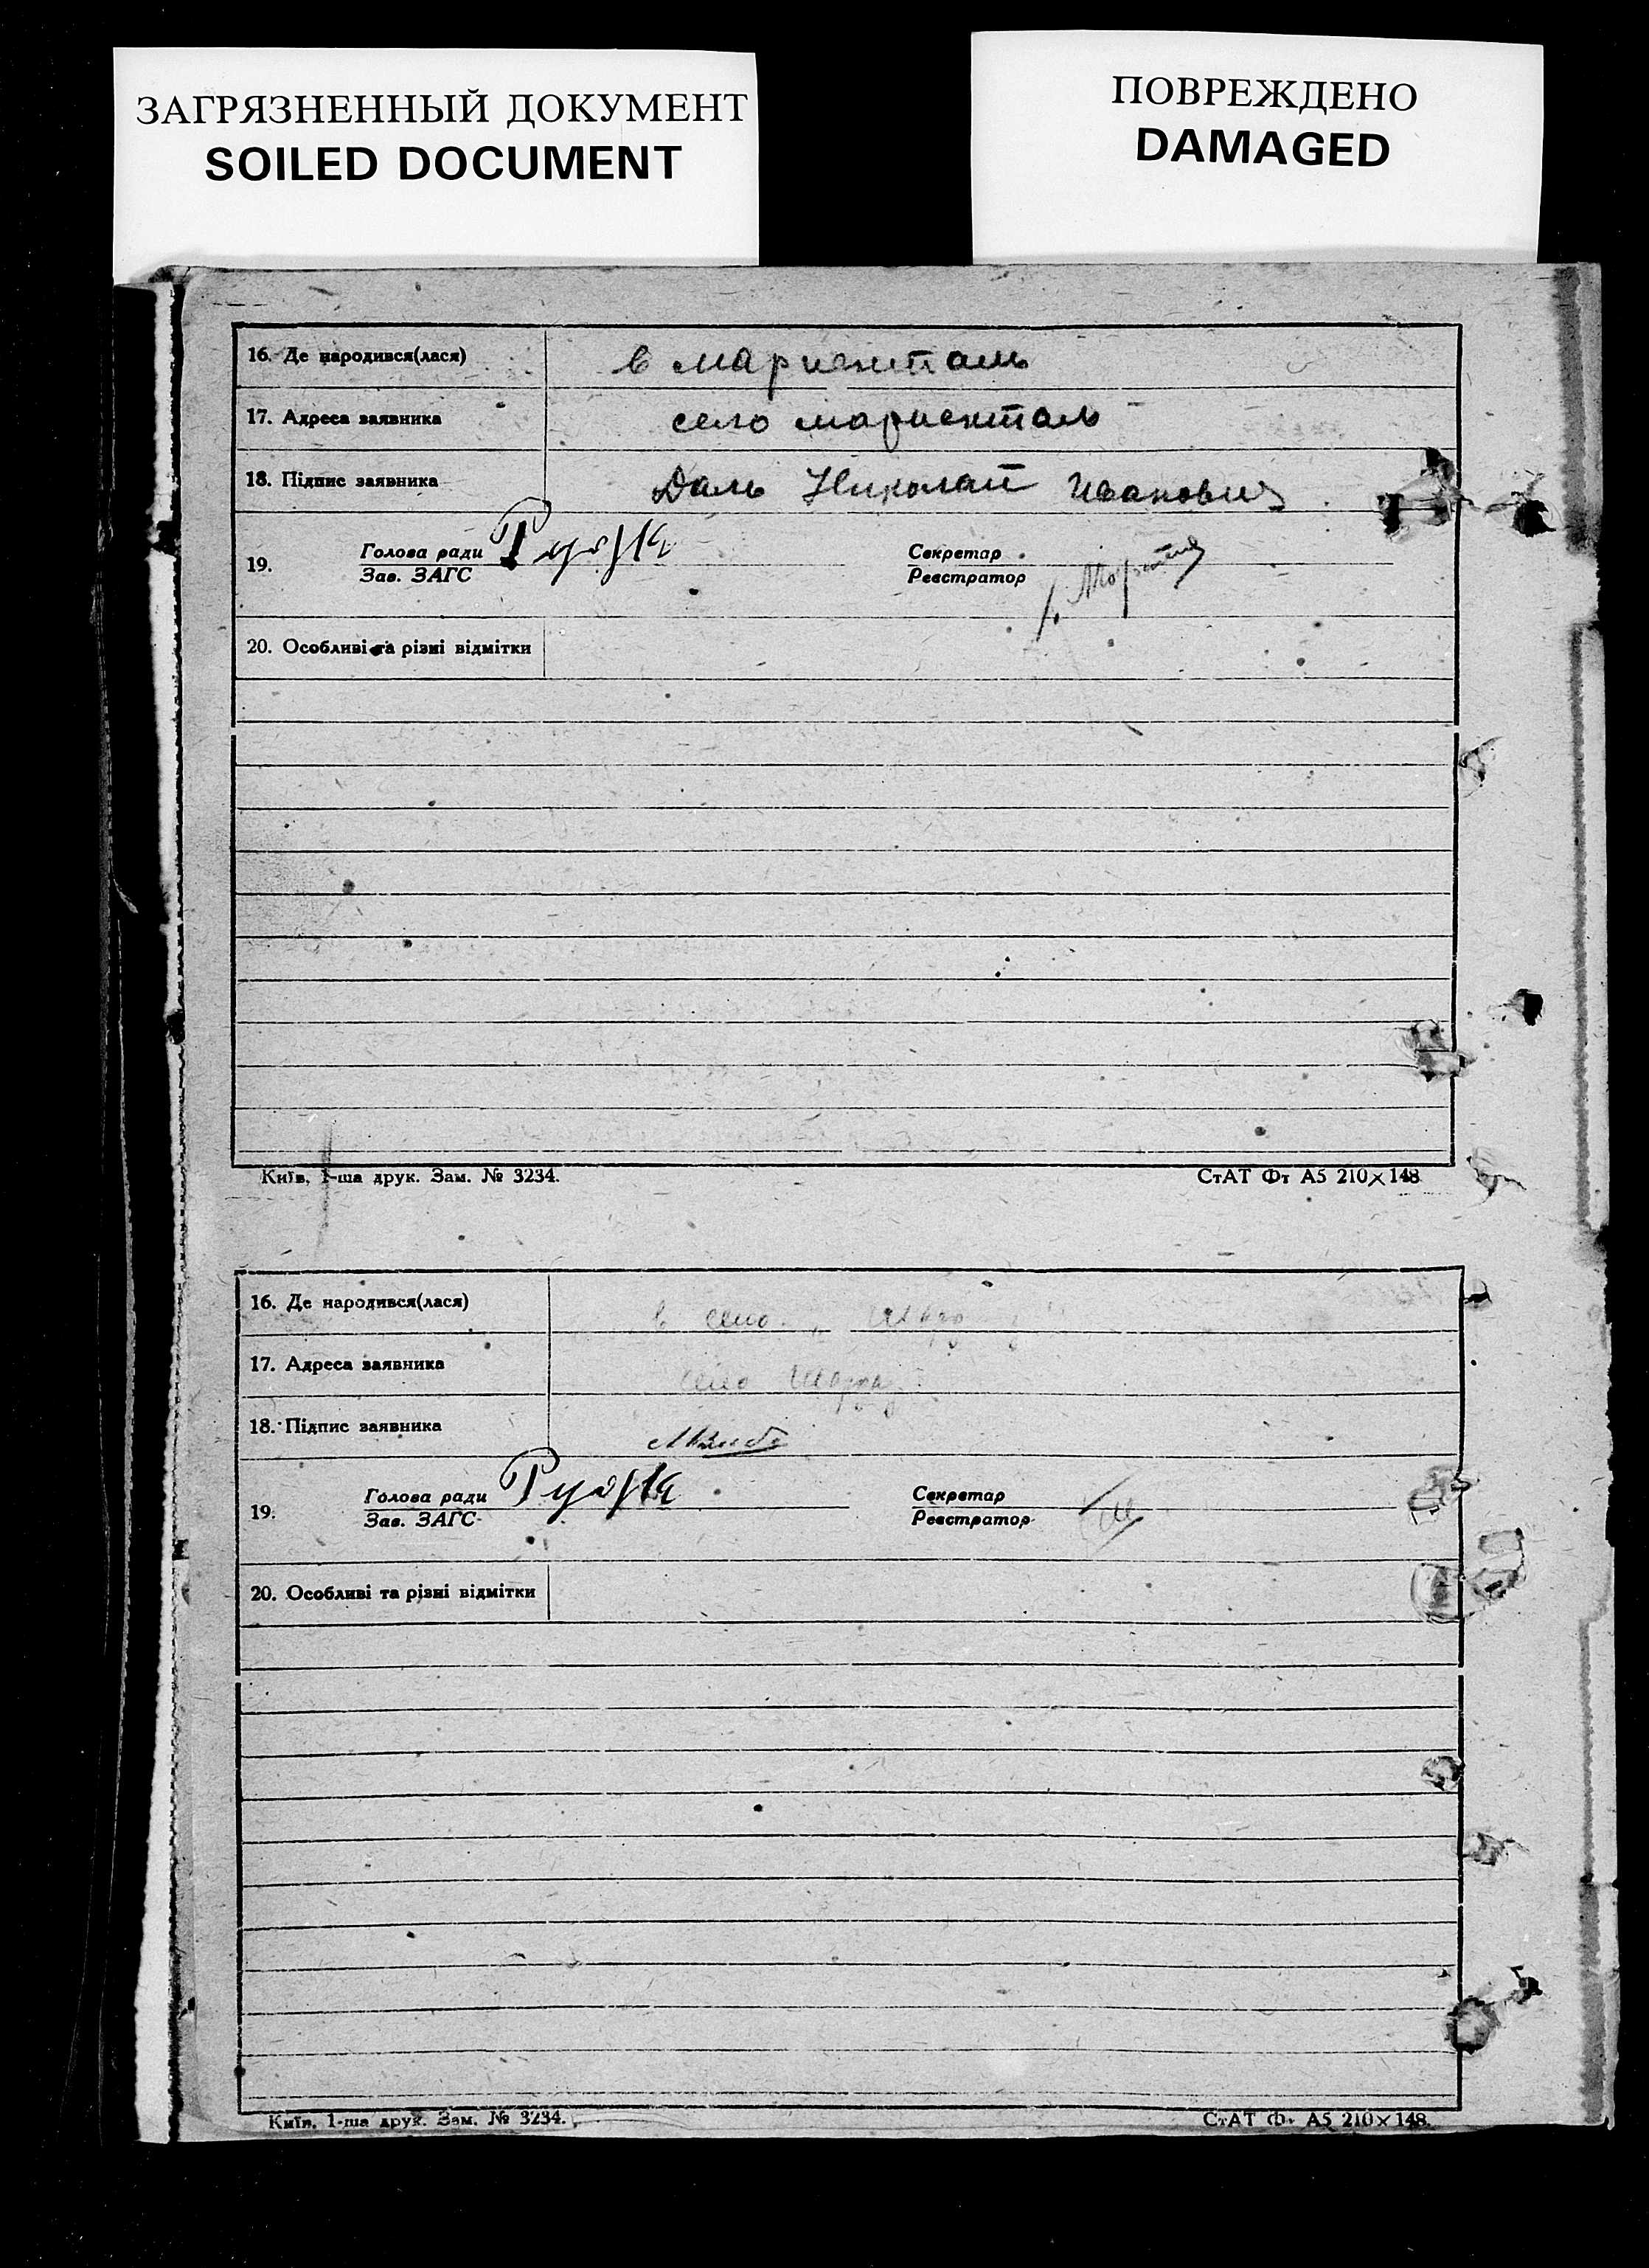 ЗАГРЯЗНЕННЫЙ ДОКУМЕНТ
SOILED DOCUMENT
ПОВРЕЖДЕНО
DAMAGED
16. Де народився(лася) в мариенталь
17. Адреса заявника село мариенталь
18. Підпис заявника Даль Николай Иванович
19. Голова ради
Зав. ЗАГС
Секретар
Реєстратор
20. Особливі та різні відмітки
Київ, 1-ша друк. Зам. № 3234.
СтАТ Фт А5 210×148
16. Де народився(лася) в село
17. Адреса заявника село
18. Підпис заявника
19. Голова ради
Зав. ЗАГС
Секретар
Реєстратор
20. Особливі та різні відмітки
Київ, 1-ша друк. Зам. № 3234.
СтАТ Фт А5 210×148.